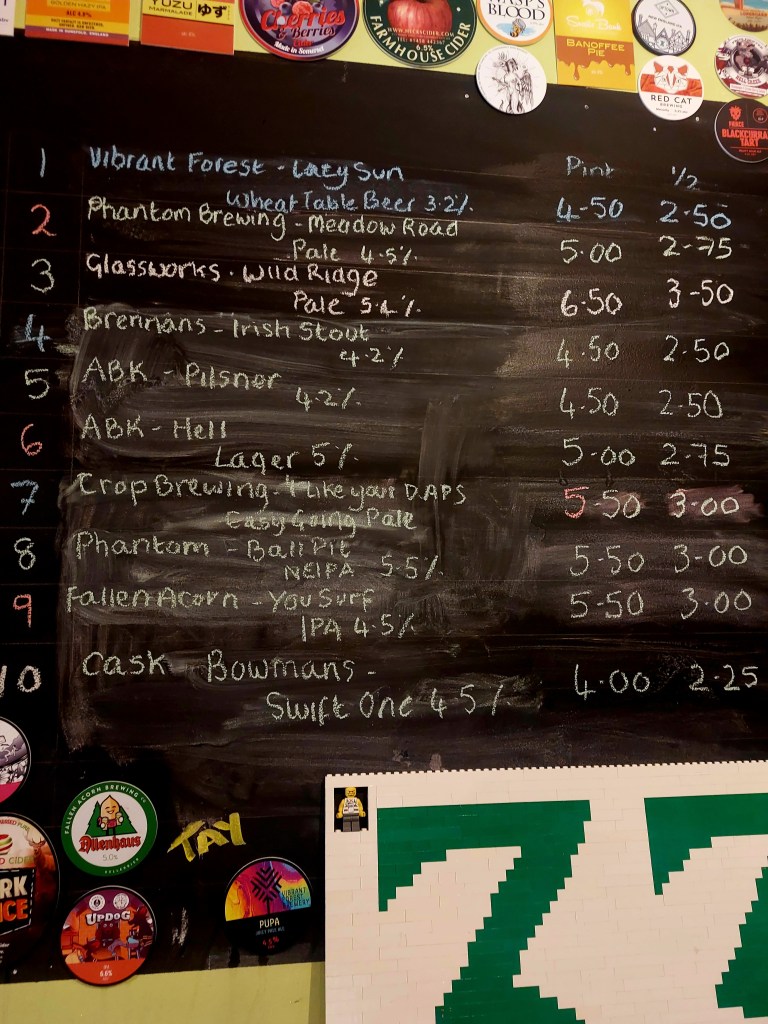 GOLDEN HAZY IPA
YUZU ゆず
MARMALADE
Cherries
& Berries
Made in Somerset
FARMHOUSE CIDER
6.5%
WASP'S
BLOOD
BANOFFEE
PIE
RED CAT
BREWING
BLACKCURRANT
TART
Pint 1/2
1 Vibrant Forest - Lazy Sun
Wheat Table Beer 3.2% 4-50 2-50
2 Phantom Brewing - Meadow Road
Pale 4.5% 5.00 2-75
3 Glassworks - Wild Ridge
Pale 6-50 3-50
4 Brennans - Irish Stout
4.2% 4.50 2.50
5 ABK - Pilsner
4.2% 4.50 2.50
6 ABK - Hell
Lager 5% 5-00 2-75
7 Crop Brewing - I Like your DAPS 5-50 3-00
Easy Going Pale
8 Phantom - Ball Pit
NEIPA 5.5% 5-50 3-00
9 Fallen Acorn - You Surf
IPA 4.5% 5-50 3-00
10 Cask Bowmans -
Swift One 4.5% 4.00 2.25
FALLEN ACORN BREWING CO
5.0%
TAY
UPDOG
8.6%
VIBRANT
FOREST
BREWERY
PUPA